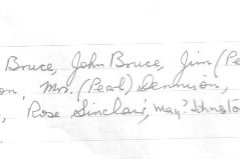 Bruce, John Bruce, Jim (Pe
on, Mrs. (Pearl) Dennison,
, Rose Sinclair, May Johnston